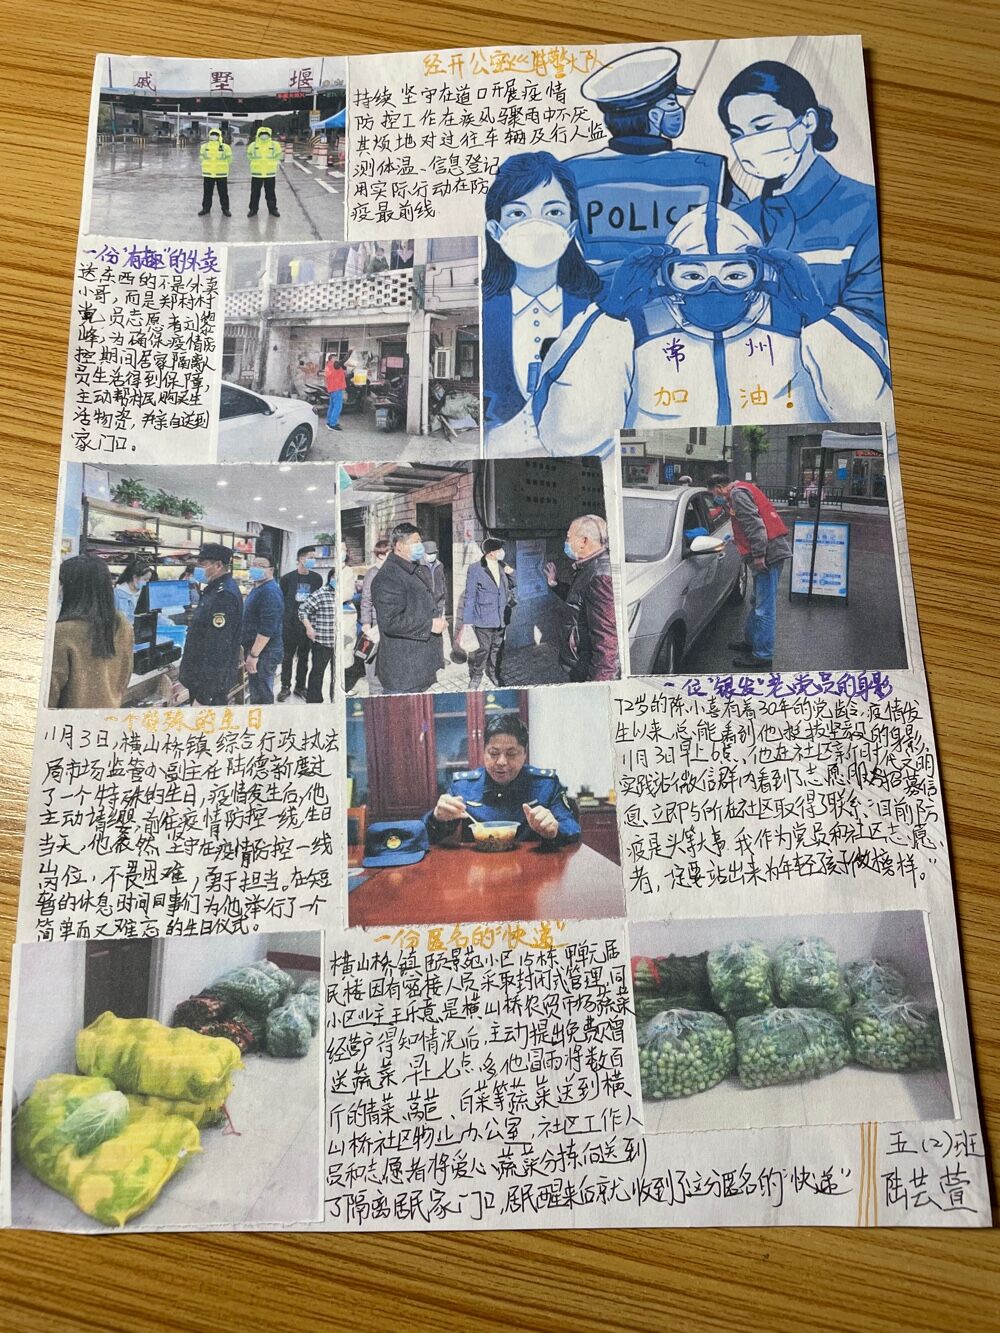 戚墅堰
经开公安巡特警大队
持续坚守在道口开展疫情
防控工作在疾风骤雨中不厌
其烦地对过往车辆及行人监
测体温、信息登记
用实际行动在防
疫最前线
POLICE
常州
加油！
一份"有趣"的外卖
送东西的不是外卖
小哥，而是郑村村
党员志愿者刘
峰，为确保疫情防
控期间居家隔离人
员生活得到保障，
主动帮村民购买生
活物资，并亲自送到
家门口。
一个特殊的生日
11月3日，横山桥镇综合行政执法
局市场监管办副主任陆德新度过
了一个特殊的生日，疫情发生后，他
主动请缨，前往疫情防控一线，生日
当天，他依然坚守在疫情防控一线
岗位，不畏困难，勇于担当。在短
暂的休息时间同事们为他举行了一个
简单而又难忘的生日仪式。
一位"银发"老党员的身影
72岁的陈小喜有着30年的党龄，疫情发
生以来，总能看到他挺拔坚毅的身影，
11月3日早上6点，他在社区新时代文明
实践站微信群内看到了志愿服务招募信
息，立即与所在社区取得了联系："目前防
疫是头等大事，我作为党员和社区志愿
者，一定要站出来为年轻孩子做榜样。"
一份匿名的"快递"
横山桥镇颐景苑小区15栋甲单元居
民楼因有密接人员采取封闭式管理，同
小区业主王乐意，是横山桥农贸市场蔬菜
经营户得知情况后，主动提出免费
送蔬菜，早上七点多他冒雨将数百
斤的青菜、莴苣、白菜等蔬菜送到横
山桥社区物业办公室，社区工作人
员和志愿者将爱心蔬菜分拣后送到
了隔离居民家门口，居民醒来后就收到了这份匿名的"快递"
五(2)班
陆芸萱